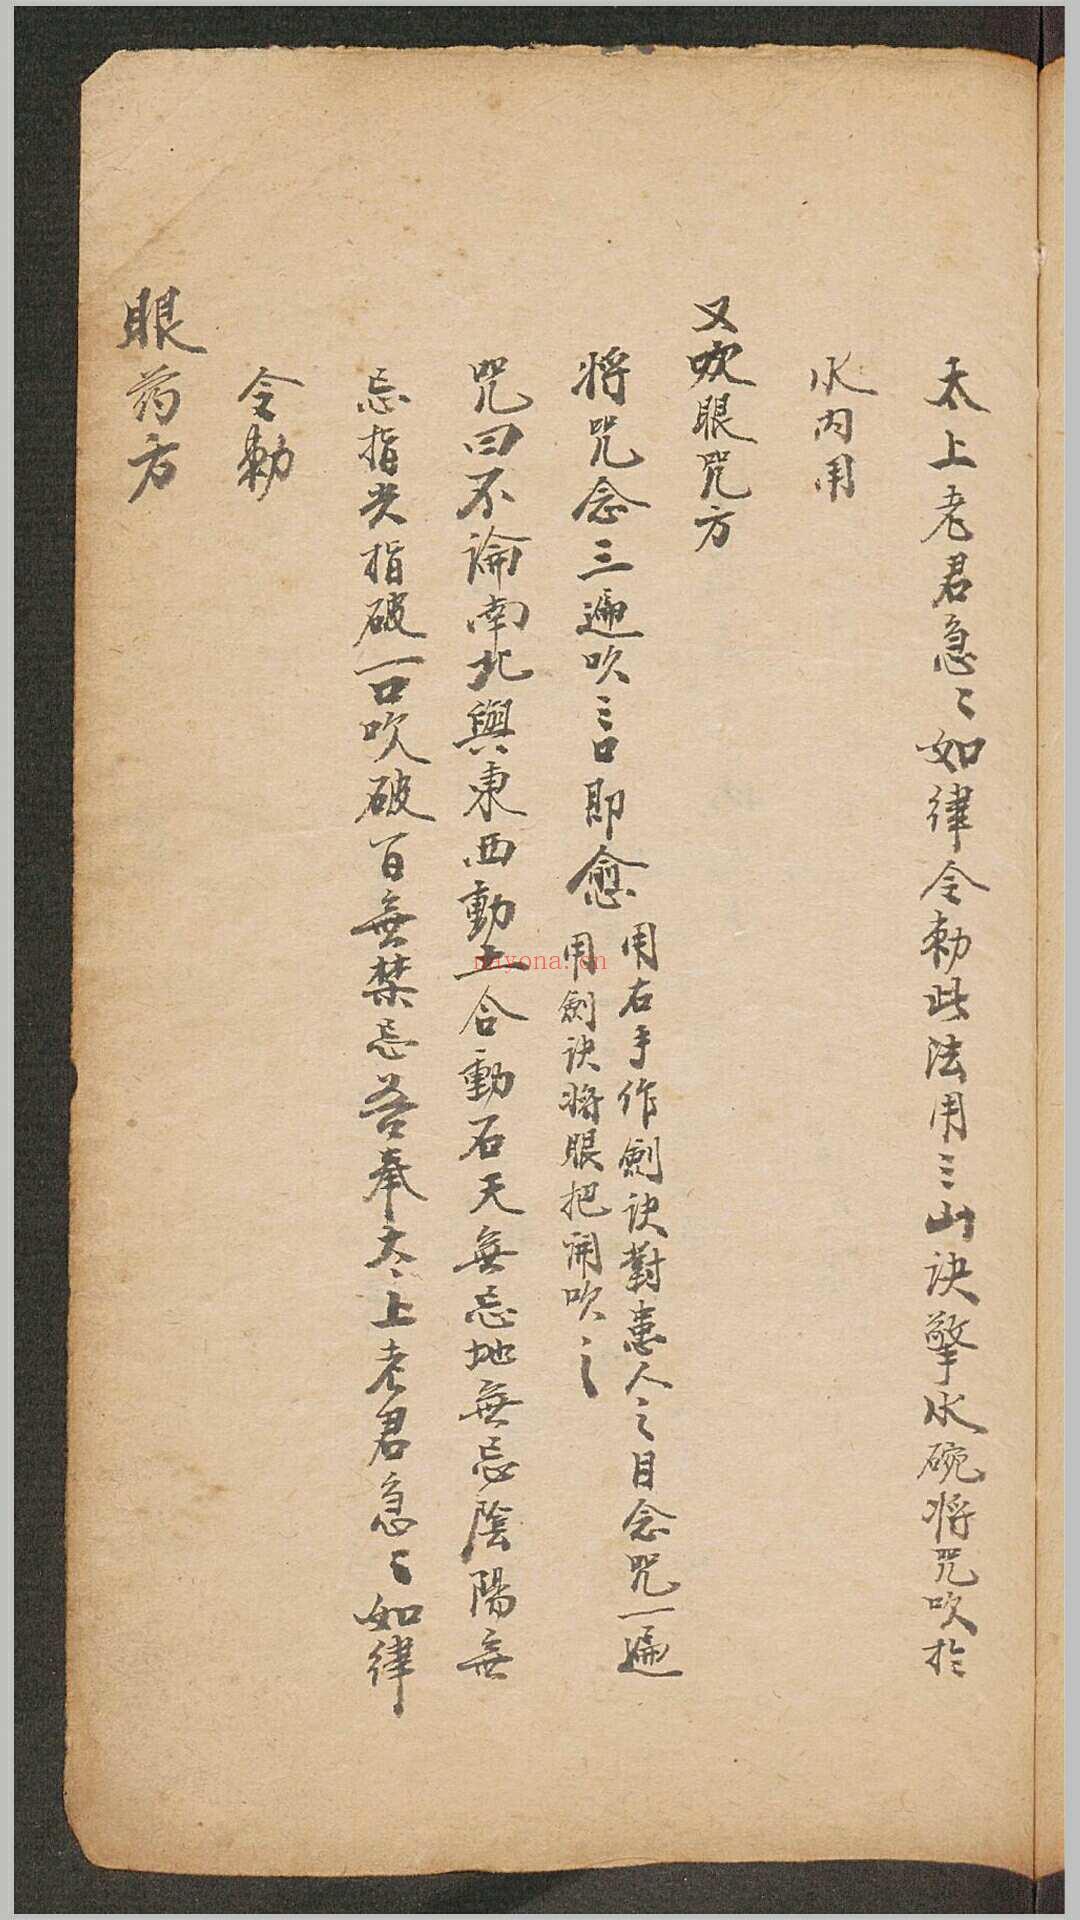 太上老君急〻如律令勅此法用三山訣擎水碗将咒吹於
水内用
又吹眼咒方
将咒念三遍吹三口即愈
用右手作劍訣對患人之目念咒一遍
用劍訣将眼把開吹之
咒曰不論南北與東西動土合動石天無忌地無忌陰陽無
忌指尖指破一口吹破百無禁忌吾奉太上老君急〻如律
令勅
眼药方
nayona.cn